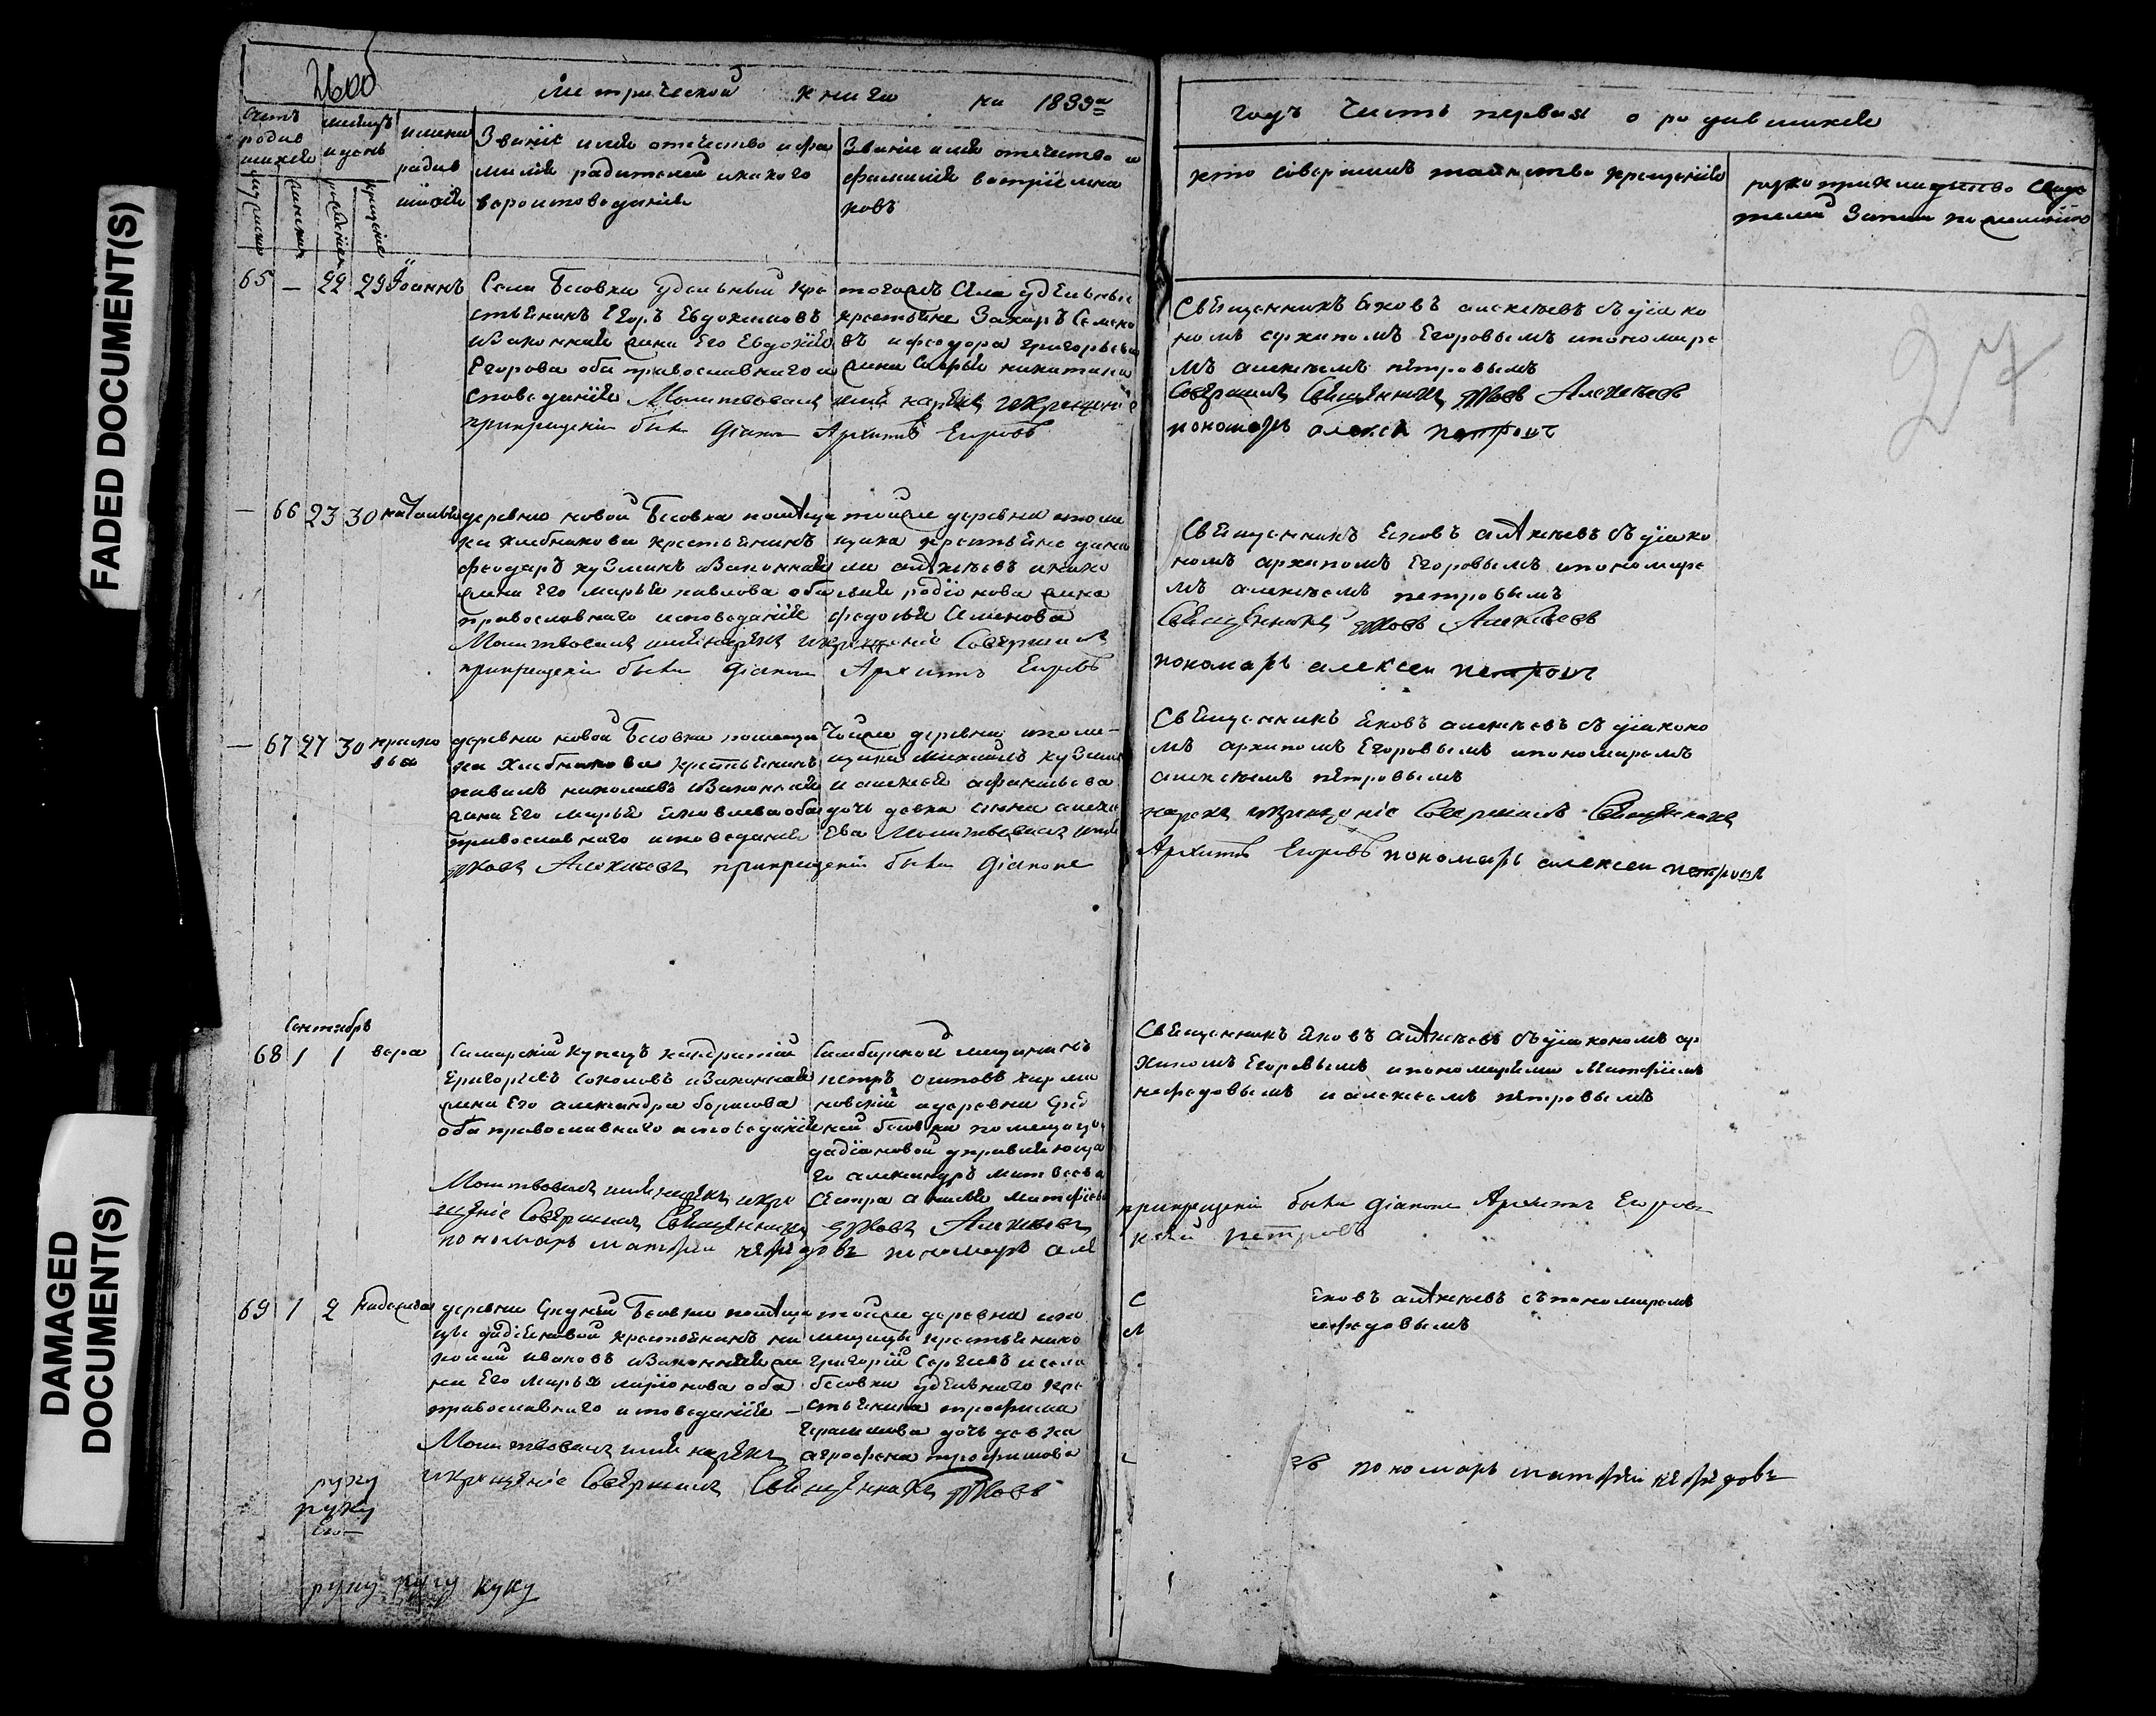 FADED DOCUMENT(S)
DAMAGED
DOCUMENT(S)
Метрической книги на 1839й
годъ Часть первая о родившихся
Счетъ
родив
шихся
месяцъ
и день
имена
родив
шихся
Званiе имя отечество и фа
милiя родителей и какого
вероисповеданiя
Званiе имя отечество и
фамилiя воспрiемни
ковъ
кто совершалъ таинство крещенiя
рукоприкладство свиде
телей записи по желанiю
65 — 22 29 Iоаннъ
Села Бесовки удельный кре
стьянинъ Егоръ Евдокимовъ
и законная жена Его Евдокiя
Егорова оба православнаго и
споведанiя Молитвовалъ имя нарекъ и крещенiе
при крещенiи былъ дiаконъ Архипъ Егоровъ
тогожъ Села удельные
крестьяне Захаръ Семено
въ и феодора григорьева
жена Софья никитина
Священникъ Яковъ алексеевъ съ дiако
номъ архипомъ Егоровымъ и пономаре
мъ алексеемъ петровымъ
Совершалъ Священникъ Яковъ Алексеевъ
пономарь алексей петровъ
— 66 23 30 наталья
деревни новой Бесовки помещи
ка хлебникова крестьянинъ
феодоръ кузминъ и законная
жена Его марья павлова оба
православнаго исповеданiя
Молитвовалъ имя нарекъ и крещенiе Совершалъ
при крещенiи былъ дiаконъ Архипъ Егоровъ
тойже деревни и поме
щика крестьяне дани
ла алексеевъ и яко
вля родiонова жена
федосья Семенова
Священникъ Яковъ алексеевъ съ дiако
номъ архипомъ Егоровымъ и пономаре
мъ алексеемъ петровымъ
Священникъ Яковъ Алексеевъ
пономарь алексеи петровъ
— 67 27 30
деревни новой Бесовки помещи
ка Хлебникова крестьянинъ
павелъ николаевъ и законная
жена Его марья Яковлева оба
православнаго исповеданiя
Яковъ Алексеевъ при крещенiи былъ дiаконъ
тойже деревни и поме-
щика Михайлъ кузмин
и алексея афанасьева
дочь девка анна алексе
Ева Молитвовалъ имя
Священникъ Яковъ алексеевъ съ дiаконо
мъ архипомъ Егоровымъ и пономаремъ
алексеемъ петровымъ
нарекъ и крещенiе Совершалъ Священникъ
Архипъ Егоровъ пономарь алексеи петровъ
Сентябрь
68 1 1 вера
Самарскiй купецъ кандратiй
Григорьевъ Соколовъ и законная
жена Его александра борисова
оба православнаго исповеданiя
Молитвовалъ имя нарекъ и кре
щенiе Совершалъ Священникъ Яковъ Алексеевъ
пономарь матфеи нефедовъ пономарь але
Симбирской мещанинъ
петръ осиповъ
новскiй и деревни Сред
ней бесовки помещицы
дадiановой управляюща
го александръ матвеева
Сестра анисья матфеева
Священникъ Яковъ алексеевъ съ дiакономъ ар
хипомъ Егоровымъ и пономарями Матфеемъ
нефедовымъ и алексеемъ петровымъ
при крещенiи былъ дiаконъ Архипъ Егоровъ
ксей петровъ
69 1 2 Надежда
деревни Средней Бесовки помещи
цы дадiановой крестьянинъ ни
колай ивановъ и законная же
на Его Марья лаiонова оба
православнаго исповеданiя —
Молитвовалъ имя нарекъ
и крещенiе Совершалъ Священникъ Яковъ
тойже деревни и по
мещицы крестьянинъ
григорiй Сергеевъ и села
бесовки удельнаго кре
стьянина трофима
Герасимова дочь девка
агрофена трофимова
Яковъ алексеевъ съ пономаремъ
нефедовымъ
въ пономарь матфеи нефедовъ
руку
руку
Его
руку руку куку
27